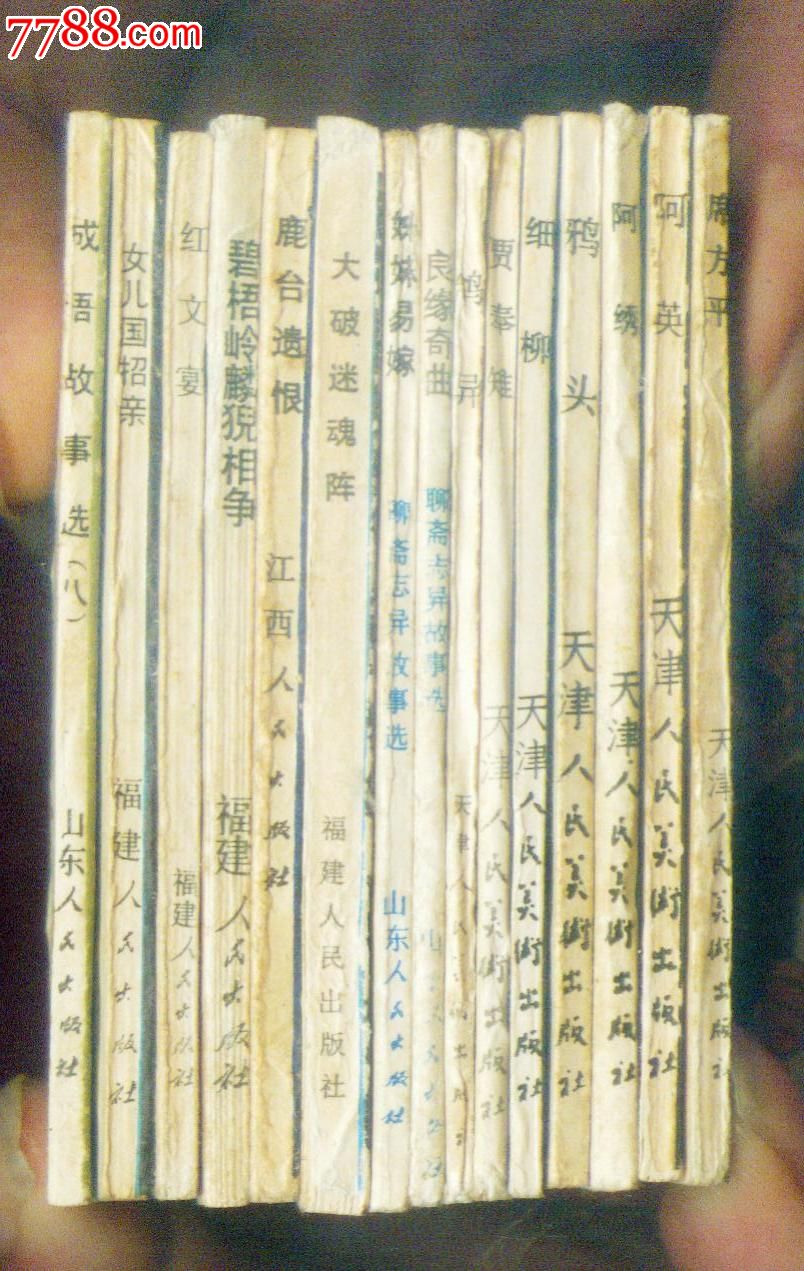 7788.com
成语故事选(八)
山东人民出版社
女儿国招亲
福建人民出版社
红文宴
福建人民出版社
碧梧岭麟猊相争
福建人民出版社
鹿台遗恨
江西人民出版社
大破迷魂阵
福建人民出版社
姊妹易嫁
聊斋志异故事选
山东人民出版社
良缘奇曲
聊斋志异故事选
山东人民出版社
鸽异
天津人民美术出版社
贾奉雉
天津人民美术出版社
细柳
天津人民美术出版社
鸦头
天津人民美术出版社
阿绣
天津人民美术出版社
阿英
天津人民美术出版社
席方平
天津人民美术出版社